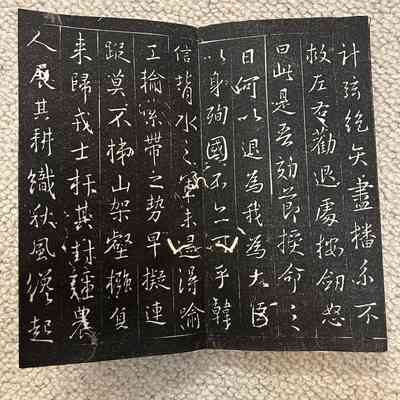 計弦絕矢盡播系不
救左右勸退處按劒怒
曰此是吾効節授命之
日何以退為我為大臣
以身殉國不亦可乎韓
信背水之軍未遑得喻
工輸縈帶之勢早擬連
蹤莫不梯山架壑襁負
来歸戎士扞其封疆農
人展其耕織秋風纔起